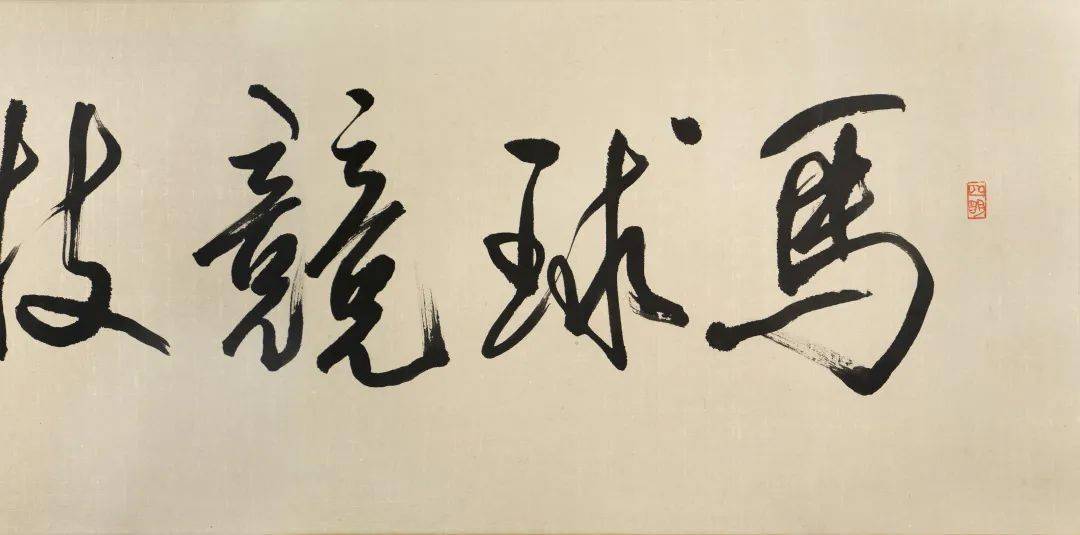 馬球競技